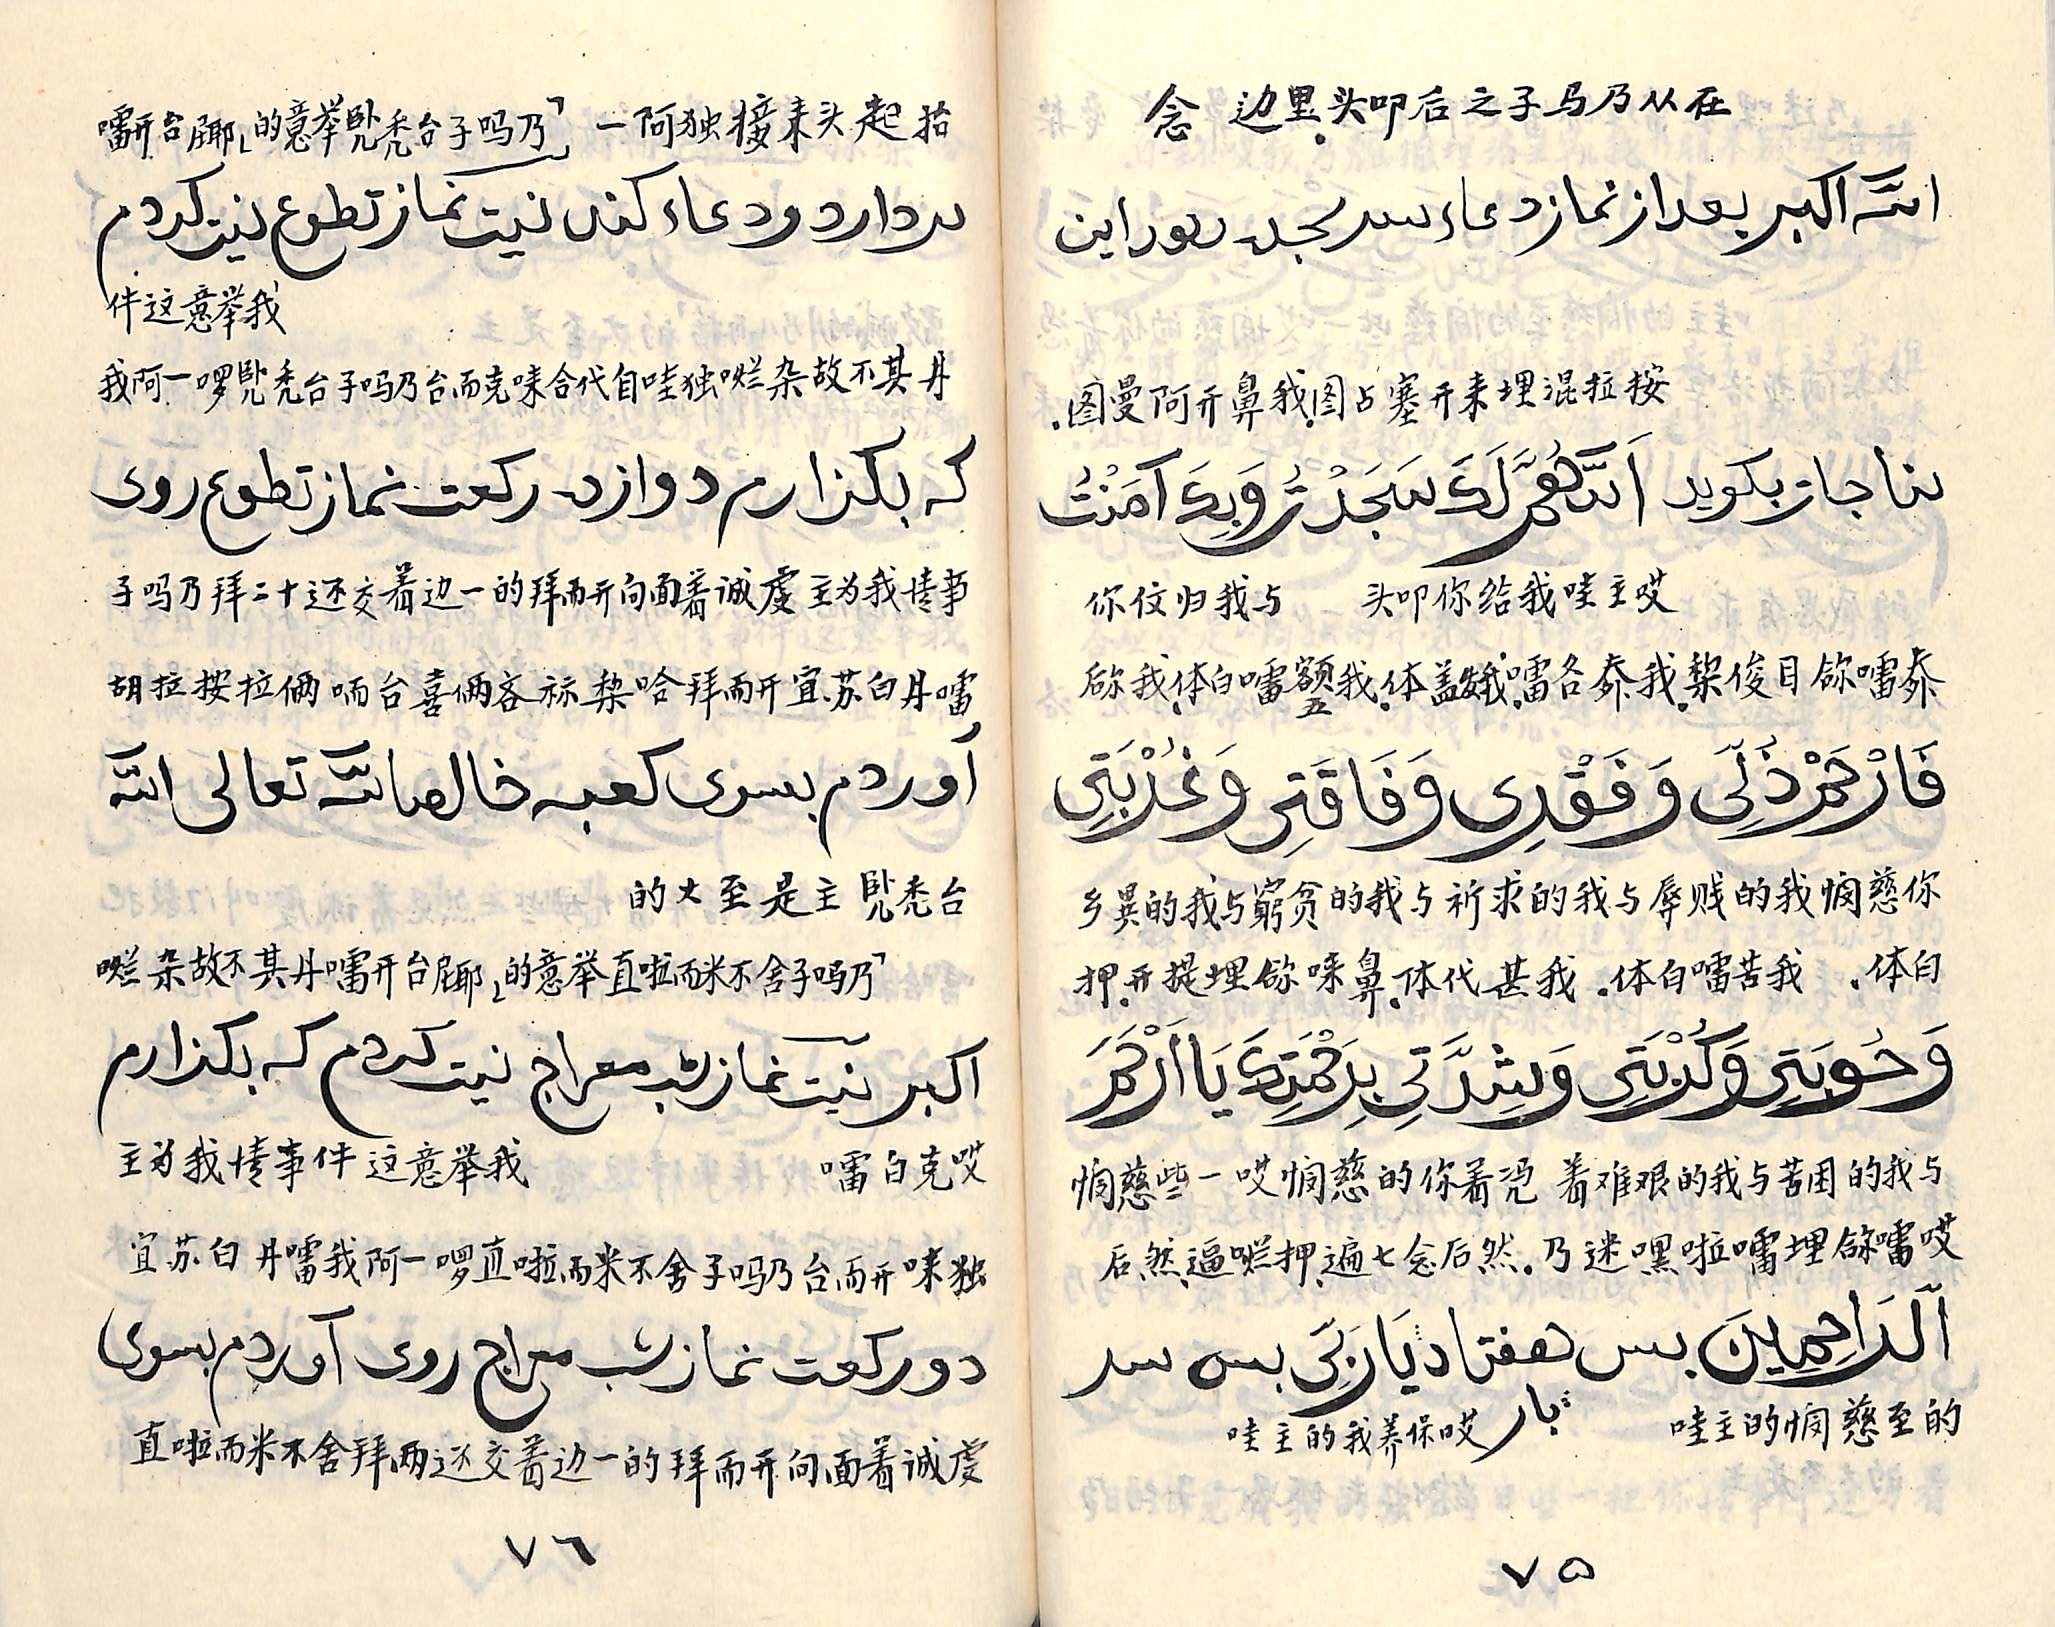 在从乃马子之后叩头.里边 念
الله اكبر بعد از نماز دعاء سر سجده اين
按拉混埋来开塞占图.我鼻开阿曼图.
مناجات بكويد اَللّٰهُمَّ لَكَ سَجَدْتُ وَبِكَ آمَنْتُ
哎主哇我给你叩头 与我归仗你
فَارْحَمْ ذُلِّي وَفَقْرِي وَفَاقَتِي وَغُرْبَتِي
你慈悯我的贱辱与我的求祈与我的贫窮与我的異乡
白体. 我苦嚅白体.我甚代体.鼻味埋提开.押
وَحُوبَتِي وَكُرْبَتِي وَشِدَّتِي بِرَحْمَتِكَ يَا اَرْحَمَ
与我的困苦与我的艰难着 凭着你的慈悯哎一些慈悯
哎嚅埋嚅啦嘿迷乃.然后念七遍.押囕逼.然后
اَلرَّاحِمِينَ بس هفتاد بار يَا رَبِّي بس سر
的至慈悯的主哇 哎保养我的主哇
٧٥
抬起头来接独阿一「乃吗子台秃卧举意的」台开嚅
بردارد ودعاء كند نيت نماز تطوع نيت كردم
我举意这件
丹其不故杂囕独哇自代合味克而台乃吗子台秃卧啰一阿我
كه بكذارم دوازده ركعت نماز تطوع روى
事情我为主虔诚着面向开而拜的一边着交还十二拜乃吗子
嚅丹白苏宜开而拜哈俩喜台俩拉按拉胡
آوردم بسوى كعبه خالصا لله تعالى الله
台秃卧 主是至大的
「乃吗子舍不米而啦直举意的」台开嚅丹其不故杂囕
اكبر نيت نماز شب معراج نيت كردم كه بكذارم
哎克白嚅 我举意这件事情我为主
独味开而台乃吗子舍不米而啦直啰一阿我嚅丹白苏宜
دو ركعت نماز شب معراج روى آوردم بسوى
虔诚着面向开而拜的一边着交还两拜舍不米而啦直
٧٦